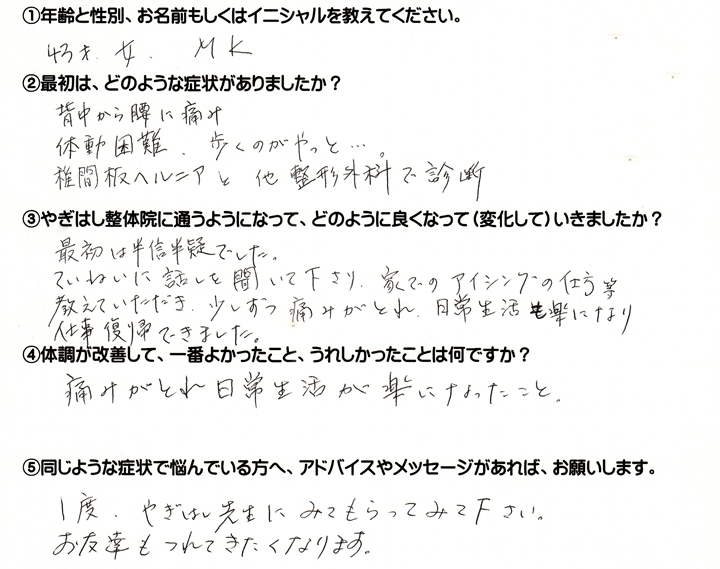 ①年齢と性別、お名前もしくはイニシャルを教えてください。
43才. 女. MK
②最初は、どのような症状がありましたか？
背中から腰に痛み
体動困難、歩くのがやっと…。
椎間板ヘルニアと他整形外科で診断
③やぎはし整体院に通うようになって、どのように良くなって（変化して）いきましたか？
最初は半信半疑でした。
ていねいに話しを聞いて下さり、家でのアイシングの仕方等
教えていただき、少しずつ痛みがとれ、日常生活も楽になり
仕事復帰できました。
④体調が改善して、一番よかったこと、うれしかったことは何ですか？
痛みがとれ日常生活が楽になったこと。
⑤同じような症状で悩んでいる方へ、アドバイスやメッセージがあれば、お願いします。
1度、やぎはし先生にみてもらってみて下さい。
お友達もつれてきたくなります。